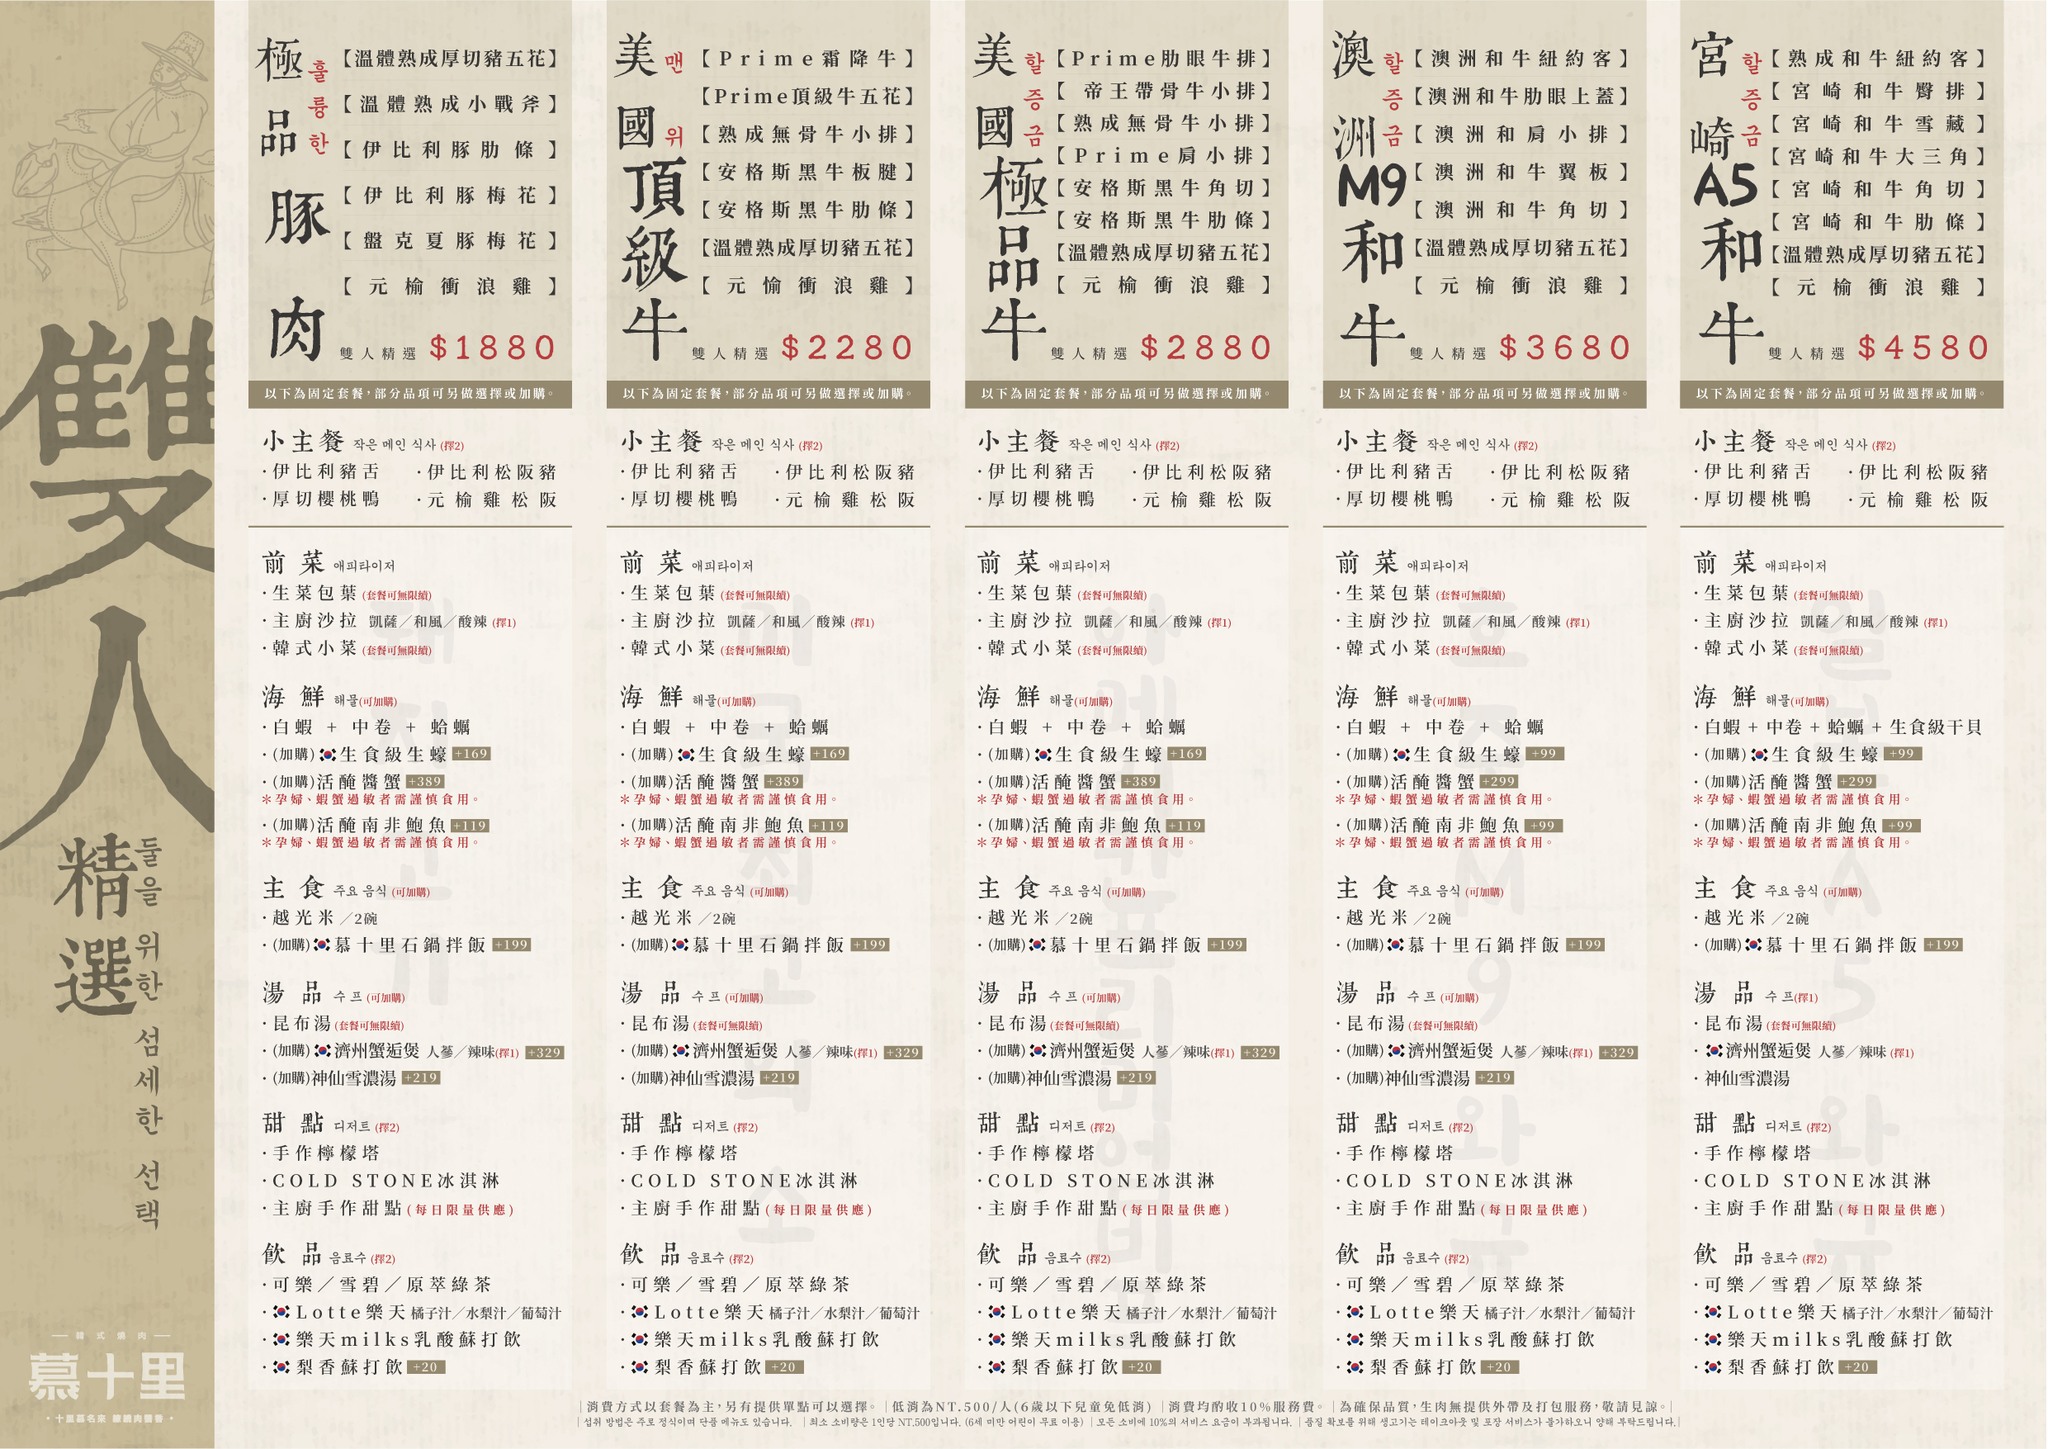 雙人
精選
둘을 위한 섬세한 선택
韓式燒肉
慕十里
極品豚肉
훌륭한
【溫體熟成厚切豬五花】
【溫體熟成小戰斧】
【伊比利豚肋條】
【伊比利豚梅花】
【盤克夏豚梅花】
【元榆衝浪雞】
雙人精選 $1880
以下為固定套餐,部分品項可另做選擇或加購。
小主餐 작은 메인 식사 (擇2)
·伊比利豬舌 ·伊比利松阪豬
·厚切櫻桃鴨 ·元榆雞松阪
前菜 애피타이저
·生菜包葉 (套餐可無限續)
·主廚沙拉 凱薩／和風／酸辣 (擇1)
·韓式小菜 (套餐可無限續)
海鮮 해물(可加購)
·白蝦 + 中卷 + 蛤蠣
·(加購)生食級生蠔 +169
·(加購)活醃醬蟹 +389
＊孕婦、蝦蟹過敏者需謹慎食用。
·(加購)活醃南非鮑魚 +119
＊孕婦、蝦蟹過敏者需謹慎食用。
主食 주요 음식 (可加購)
·越光米 ／2碗
·(加購)慕十里石鍋拌飯 +199
湯品 수프 (可加購)
·昆布湯 (套餐可無限續)
·(加購)濟州蟹逅煲 人蔘／辣味(擇1) +329
·(加購)神仙雪濃湯 +219
甜點 디저트 (擇2)
·手作檸檬塔
·COLD STONE冰淇淋
·主廚手作甜點(每日限量供應)
飲品 음료수 (擇2)
·可樂／雪碧／原萃綠茶
·Lotte樂天 橘子汁／水梨汁／葡萄汁
·樂天milks乳酸蘇打飲
·梨香蘇打飲 +20
美國頂級牛
맨위
【Prime霜降牛】
【Prime頂級牛五花】
【熟成無骨牛小排】
【安格斯黑牛板腱】
【安格斯黑牛肋條】
【溫體熟成厚切豬五花】
【元愉衝浪雞】
雙人精選 $2280
以下為固定套餐,部分品項可另做選擇或加購。
小主餐 작은 메인 식사 (擇2)
·伊比利豬舌 ·伊比利松阪豬
·厚切櫻桃鴨 ·元榆雞松阪
前菜 애피타이저
·生菜包葉 (套餐可無限續)
·主廚沙拉 凱薩／和風／酸辣 (擇1)
·韓式小菜 (套餐可無限續)
海鮮 해물(可加購)
·白蝦 + 中卷 + 蛤蠣
·(加購)生食級生蠔 +169
·(加購)活醃醬蟹 +389
＊孕婦、蝦蟹過敏者需謹慎食用。
·(加購)活醃南非鮑魚 +119
＊孕婦、蝦蟹過敏者需謹慎食用。
主食 주요 음식 (可加購)
·越光米 ／2碗
·(加購)慕十里石鍋拌飯 +199
湯品 수프 (可加購)
·昆布湯 (套餐可無限續)
·(加購)濟州蟹逅煲 人蔘／辣味(擇1) +329
·(加購)神仙雪濃湯 +219
甜點 디저트 (擇2)
·手作檸檬塔
·COLD STONE冰淇淋
·主廚手作甜點(每日限量供應)
飲品 음료수 (擇2)
·可樂／雪碧／原萃綠茶
·Lotte樂天 橘子汁／水梨汁／葡萄汁
·樂天milks乳酸蘇打飲
·梨香蘇打飲 +20
美國極品牛
할증금
【Prime肋眼牛排】
【帝王帶骨牛小排】
【熟成無骨牛小排】
【Prime肩小排】
【安格斯黑牛角切】
【安格斯黑牛肋條】
【溫體熟成厚切豬五花】
【元榆衝浪雞】
雙人精選 $2880
以下為固定套餐,部分品項可另做選擇或加購。
小主餐 작은 메인 식사 (擇2)
·伊比利豬舌 ·伊比利松阪豬
·厚切櫻桃鴨 ·元榆雞松阪
前菜 애피타이저
·生菜包葉 (套餐可無限續)
·主廚沙拉 凱薩／和風／酸辣 (擇1)
·韓式小菜 (套餐可無限續)
海鮮 해물(可加購)
·白蝦 + 中卷 + 蛤蠣
·(加購)生食級生蠔 +169
·(加購)活醃醬蟹 +389
＊孕婦、蝦蟹過敏者需謹慎食用。
·(加購)活醃南非鮑魚 +119
＊孕婦、蝦蟹過敏者需謹慎食用。
主食 주요 음식 (可加購)
·越光米 ／2碗
·(加購)慕十里石鍋拌飯 +199
湯品 수프 (可加購)
·昆布湯 (套餐可無限續)
·(加購)濟州蟹逅煲 人蔘／辣味(擇1) +329
·(加購)神仙雪濃湯 +219
甜點 디저트 (擇2)
·手作檸檬塔
·COLD STONE冰淇淋
·主廚手作甜點(每日限量供應)
飲品 음료수 (擇2)
·可樂／雪碧／原萃綠茶
·Lotte樂天 橘子汁／水梨汁／葡萄汁
·樂天milks乳酸蘇打飲
·梨香蘇打飲 +20
澳洲M9和牛
할증금
【澳洲和牛紐約客】
【澳洲和牛肋眼上蓋】
【澳洲和肩小排】
【澳洲和牛翼板】
【澳洲和牛角切】
【溫體熟成厚切豬五花】
【元榆衝浪雞】
雙人精選 $3680
以下為固定套餐,部分品項可另做選擇或加購。
小主餐 작은 메인 식사 (擇2)
·伊比利豬舌 ·伊比利松阪豬
·厚切櫻桃鴨 ·元榆雞松阪
前菜 애피타이저
·生菜包葉 (套餐可無限續)
·主廚沙拉 凱薩／和風／酸辣 (擇1)
·韓式小菜 (套餐可無限續)
海鮮 해물(可加購)
·白蝦 + 中卷 + 蛤蠣
·(加購)生食級生蠔 +99
·(加購)活醃醬蟹 +299
＊孕婦、蝦蟹過敏者需謹慎食用。
·(加購)活醃南非鮑魚 +99
＊孕婦、蝦蟹過敏者需謹慎食用。
主食 주요 음식 (可加購)
·越光米 ／2碗
·(加購)慕十里石鍋拌飯 +199
湯品 수프 (可加購)
·昆布湯 (套餐可無限續)
·(加購)濟州蟹逅煲 人蔘／辣味(擇1) +329
·(加購)神仙雪濃湯 +219
甜點 디저트 (擇2)
·手作檸檬塔
·COLD STONE冰淇淋
·主廚手作甜點(每日限量供應)
飲品 음료수 (擇2)
·可樂／雪碧／原萃綠茶
·Lotte樂天 橘子汁／水梨汁／葡萄汁
·樂天milks乳酸蘇打飲
·梨香蘇打飲 +20
宮崎A5和牛
할증금
【熟成和牛紐約客】
【宮崎和牛臀排】
【宮崎和牛雪藏】
【宮崎和牛大三角】
【宮崎和牛角切】
【宮崎和牛肋條】
【溫體熟成厚切豬五花】
【元榆衝浪雞】
雙人精選 $4580
以下為固定套餐,部分品項可另做選擇或加購。
小主餐 작은 메인 식사 (擇2)
·伊比利豬舌 ·伊比利松阪豬
·厚切櫻桃鴨 ·元榆雞松阪
前菜 애피타이저
·生菜包葉 (套餐可無限續)
·主廚沙拉 凱薩／和風／酸辣 (擇1)
·韓式小菜 (套餐可無限續)
海鮮 해물(可加購)
·白蝦 + 中卷 + 蛤蠣 + 生食級干貝
·(加購)生食級生蠔 +99
·(加購)活醃醬蟹 +299
＊孕婦、蝦蟹過敏者需謹慎食用。
·(加購)活醃南非鮑魚 +99
＊孕婦、蝦蟹過敏者需謹慎食用。
主食 주요 음식 (可加購)
·越光米 ／2碗
·(加購)慕十里石鍋拌飯 +199
湯品 수프(擇1)
·昆布湯 (套餐可無限續)
·濟州蟹逅煲 人蔘／辣味 (擇1)
·神仙雪濃湯
甜點 디저트 (擇2)
·手作檸檬塔
·COLD STONE冰淇淋
·主廚手作甜點(每日限量供應)
飲品 음료수 (擇2)
·可樂／雪碧／原萃綠茶
·Lotte樂天 橘子汁／水梨汁／葡萄汁
·樂天milks乳酸蘇打飲
·梨香蘇打飲 +20
|消費方式以套餐為主,另有提供單點可以選擇。|低消為NT.500/人(6歲以下兒童免低消)|消費均酌收10%服務費。|為確保品質,生肉無提供外帶及打包服務,敬請見諒。|
|섭취 방법은 주로 정식이며 단품 메뉴도 있습니다. |최소 소비량은 1인당 NT.500입니다. (6세 미만 어린이 무료 이용) |모든 소비에 10%의 서비스 요금이 부과됩니다. |품질 확보를 위해 생고기는 테이크아웃 및 포장 서비스가 불가하오니 양해 부탁드립니다.|